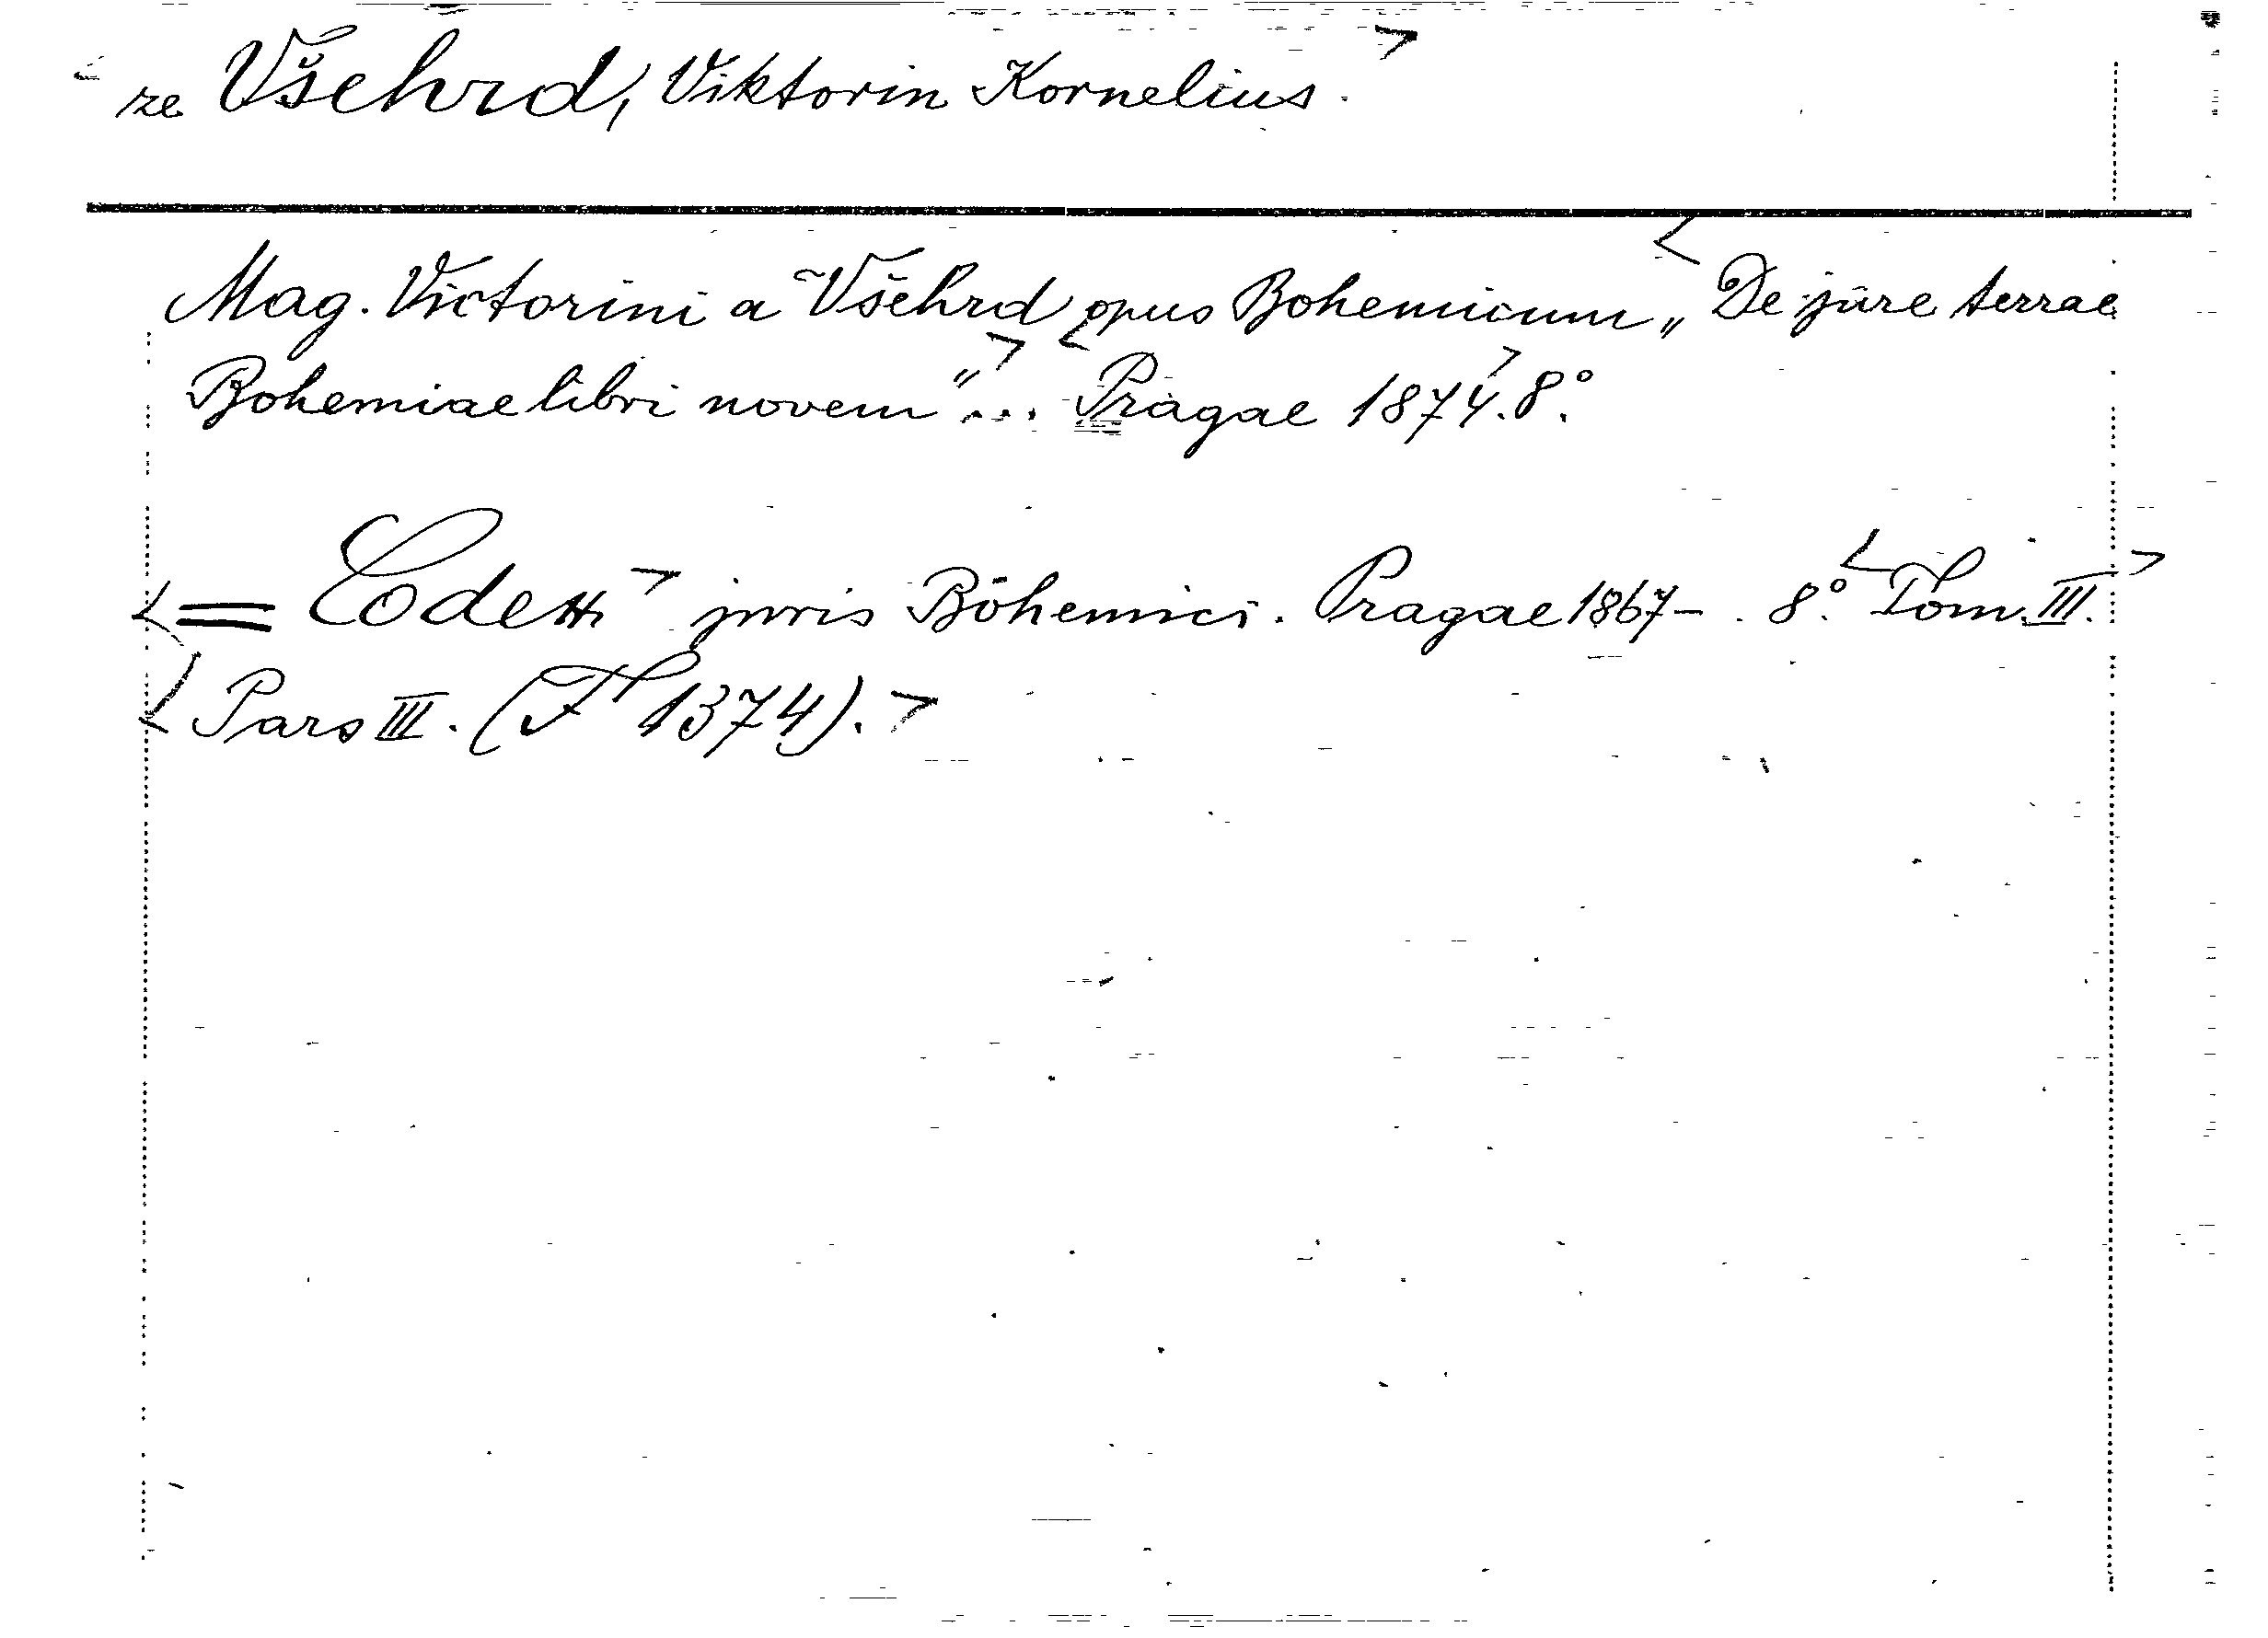 ze Všehrd, Viktorin Kornelius.
Mag. Victorini a Všehrd opus Bohemicum „De jure terrae
Bohemiae libri novem“... Pragae 1874. 8°.
= Codex juris Bohemici. Pragae 1867- . 8°. Tom. III.
Pars III. (F 1374).